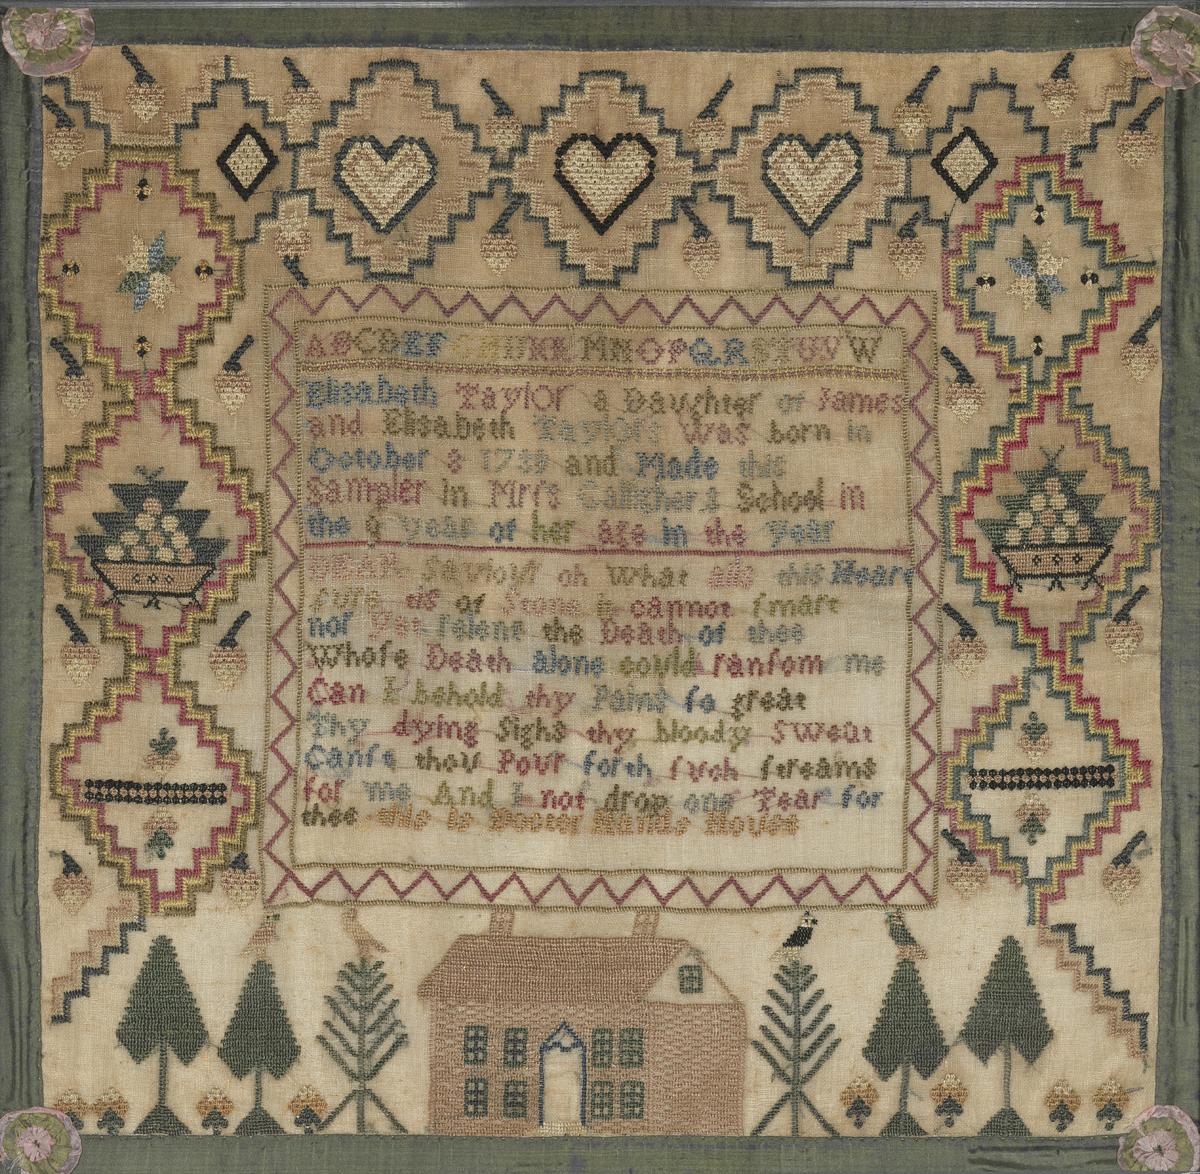 ABCDEFGHIKLMNOPQRSTUVW
Elisabeth Taylor a Daughter of James
and Elisabeth Taylors was born in
October 8 1789 and Made this
Sampler in Mrrs Galligher,s School in
the 9 year of her age in the year
DEAR Saviour oh What ails this Heart
sure tis of Stone it cannot smart
nor yet relent the Death of thee
Whose Death alone could ransom me
Can I behold thy Pains so great
Thy dying Sighs thy bloody Sweat
Canst thou Pour forth such streams
for me And I not drop one Tear for
thee this is Doctor House